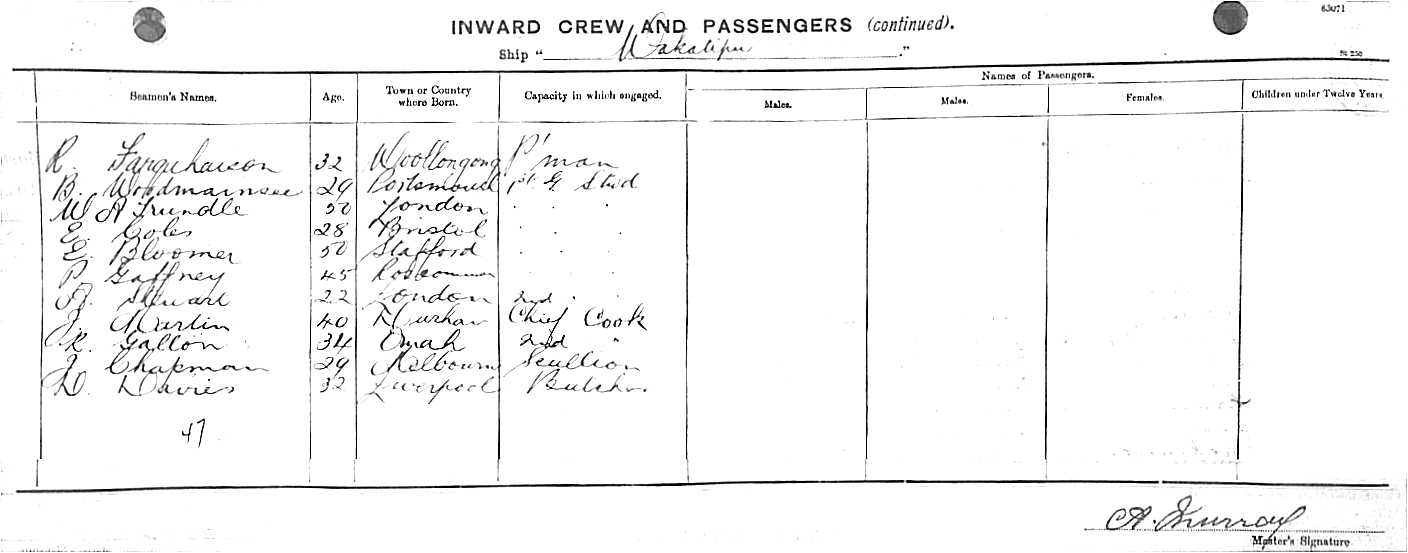 63071
INWARD CREW AND PASSENGERS (continued).
Ship "Wakatipu."
Names of Passengers.
Seamen's Names. Age. Town or Country where Born. Capacity in which engaged. Males. Males. Females. Children under Twelve Years.
R. Farquharson 32 Woollongong P'man
B. Woodmansee 29 Portsmouth 1st G Stwd
W A Trundle 50 London . . .
E. Coles 28 Bristol . . .
E. Bloomer 50 Stafford . . .
P. Gaffney 45 Roscommon . . .
A. Stewart 22 London 2nd . .
J. Martin 40 Durham Chief Cook
R. Gallon 34 Omah 2nd "
J. Chapman 29 Melbourne Scullion
D. Davies 32 Liverpool Butcher
47
A. Murray
Master's Signature